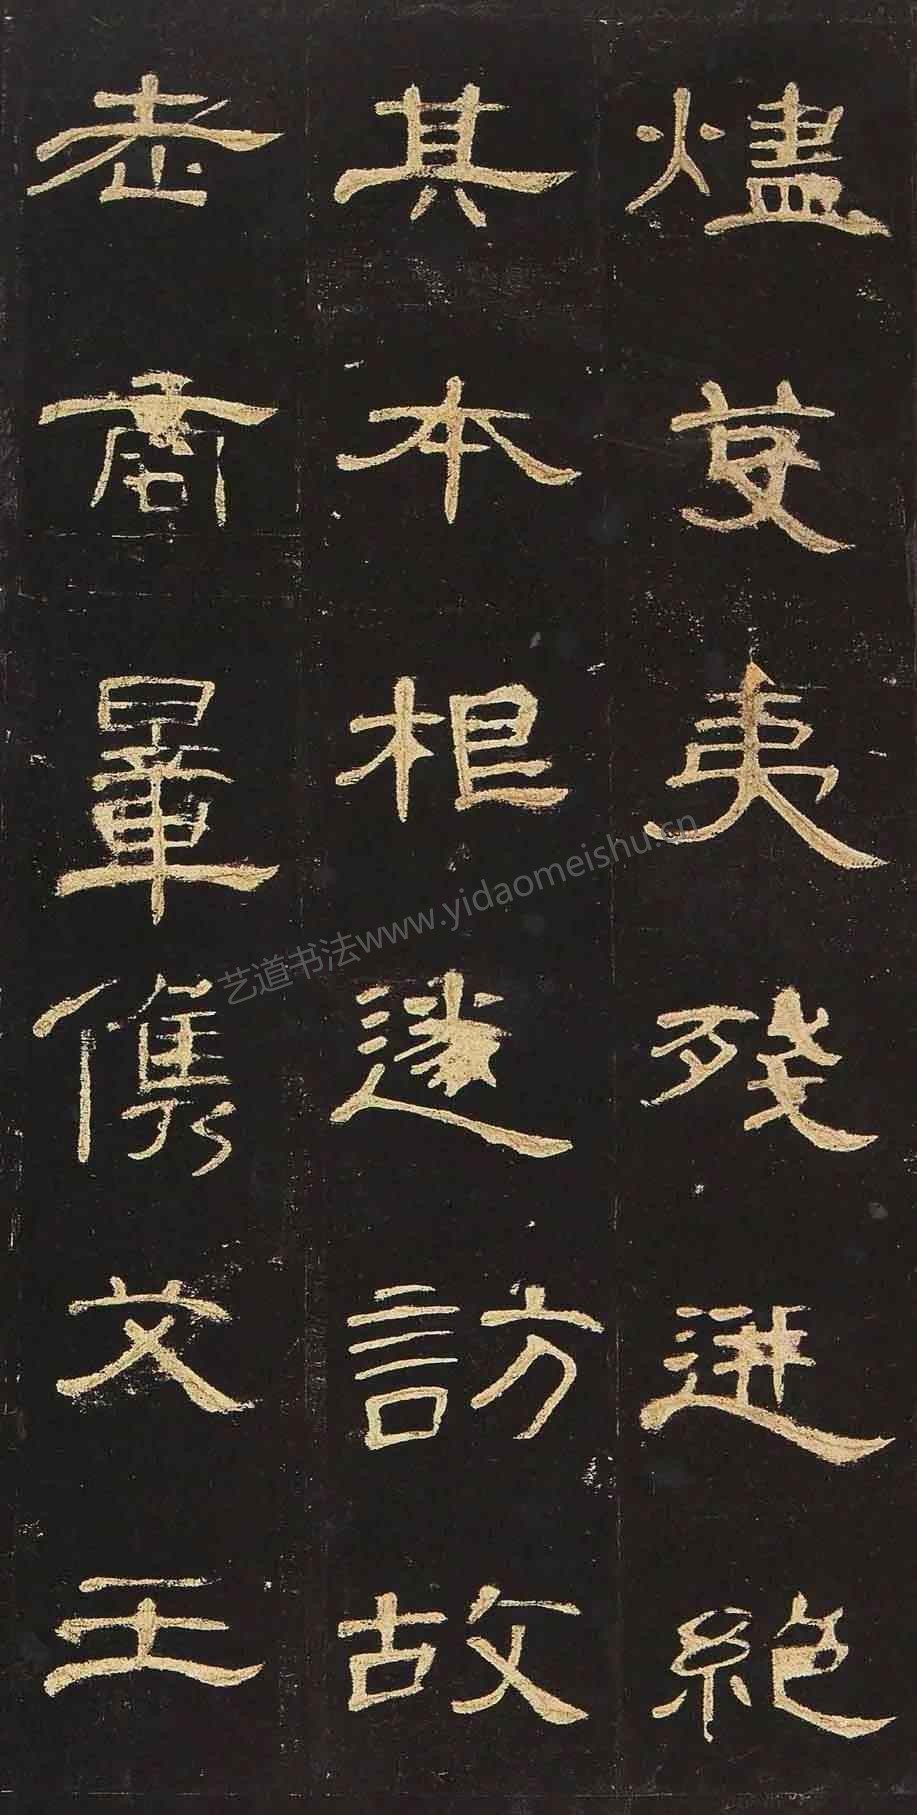 燼芟夷殘迸絕
其本根遂訪故
老商量儁艾王
艺道书法www.yidaomeishu.cn